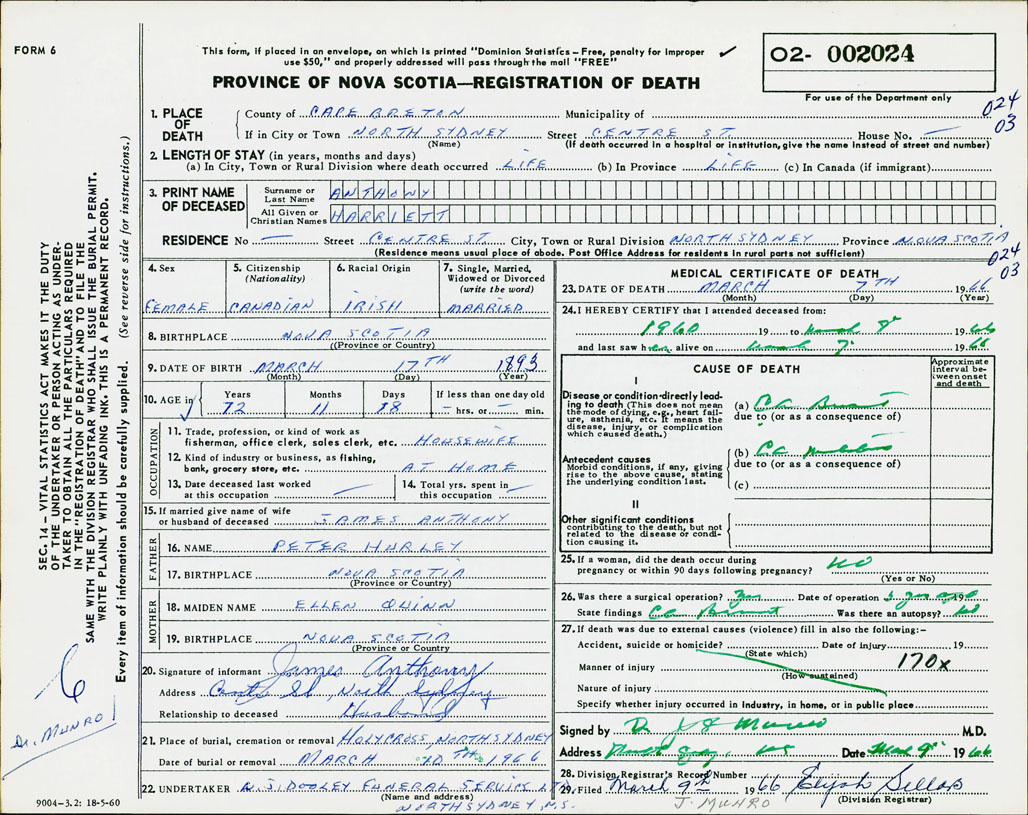 FORM 6
This form, if placed in an envelope, on which is printed "Dominion Statistics – Free, penalty for improper
use $50," and properly addressed will pass through the mail "FREE"
✓
PROVINCE OF NOVA SCOTIA—REGISTRATION OF DEATH
O2- 002024
For use of the Department only
024
03
1. PLACE OF DEATH
County of CAPE BRETON Municipality of
If in City or Town NORTH SYDNEY Street CENTRE ST. House No. —
(Name) (If death occurred in a hospital or institution, give the name instead of street and number)
2. LENGTH OF STAY (in years, months and days)
(a) In City, Town or Rural Division where death occurred LIFE (b) In Province LIFE (c) In Canada (if immigrant)
3. PRINT NAME OF DECEASED
Surname or Last Name ANTHONY
All Given or Christian Names HARRIETT
RESIDENCE No — Street CENTRE ST. City, Town or Rural Division NORTH SYDNEY Province NOVA SCOTIA
(Residence means usual place of abode. Post Office Address for residents in rural parts not sufficient)
024
03
4. Sex FEMALE
5. Citizenship (Nationality) CANADIAN
6. Racial Origin IRISH
7. Single, Married, Widowed or Divorced (write the word) MARRIED
8. BIRTHPLACE NOVA SCOTIA
(Province or Country)
9. DATE OF BIRTH MARCH 17TH 1893
(Month) (Day) (Year)
10. AGE in ✓ Years 72 Months 11 Days 18 If less than one day old – hrs. or – min.
OCCUPATION
11. Trade, profession, or kind of work as
fisherman, office clerk, sales clerk, etc. HOUSEWIFE
12. Kind of industry or business, as fishing,
bank, grocery store, etc. AT HOME
13. Date deceased last worked
at this occupation —
14. Total yrs. spent in
this occupation —
15. If married give name of wife
or husband of deceased JAMES ANTHONY
FATHER
16. NAME PETER HURLEY
17. BIRTHPLACE NOVA SCOTIA
(Province or Country)
MOTHER
18. MAIDEN NAME ELLEN QUINN
19. BIRTHPLACE NOVA SCOTIA
(Province or Country)
20. Signature of informant James Anthony
Address Centre St, North Sydney
Relationship to deceased Husband
21. Place of burial, cremation or removal HOLYCROSS, NORTH SYDNEY
Date of burial or removal MARCH 10TH 1966
22. UNDERTAKER W.J. DOOLEY FUNERAL SERVICE LTD
(Name and address)
NORTH SYDNEY, N.S.
MEDICAL CERTIFICATE OF DEATH
23. DATE OF DEATH MARCH 7TH 1966
(Month) (Day) (Year)
24. I HEREBY CERTIFY that I attended deceased from:
1960 19 to March 7 1966
and last saw her alive on March 7 1966
CAUSE OF DEATH
Approximate interval between onset and death
I
Disease or condition directly leading to death (This does not mean the mode of dying, e.g., heart failure, asthenia, etc. It means the disease, injury, or complication which caused death.)
(a) Ca Breast
due to (or as a consequence of)
Antecedent causes
Morbid conditions, if any, giving rise to the above cause, stating the underlying condition last.
(b) Ca
due to (or as a consequence of)
(c)
II
Other significant conditions
contributing to the death, but not related to the disease or condition causing it.
25. If a woman, did the death occur during
pregnancy or within 90 days following pregnancy? No
(Yes or No)
26. Was there a surgical operation? Yes Date of operation 5 yrs ago 19
State findings Ca Breast Was there an autopsy? No
27. If death was due to external causes (violence) fill in also the following:–
Accident, suicide or homicide? Date of injury 19
(State which)
170x
Manner of injury
(How sustained)
Nature of injury
Specify whether injury occurred in Industry, in home, or in public place
Signed by Dr Munro M.D.
Address Date Mar 9 1966
28. Division Registrar's Record Number
29. Filed March 9th 1966
(Division Registrar)
J. MUNRO
SEC. 14 – VITAL STATISTICS ACT MAKES IT THE DUTY
OF THE UNDERTAKER OR PERSON ACTING AS UNDER-
TAKER TO OBTAIN ALL THE PARTICULARS REQUIRED
IN THE "REGISTRATION OF DEATH" AND TO FILE THE
SAME WITH THE DIVISION REGISTRAR WHO SHALL ISSUE THE BURIAL PERMIT.
WRITE PLAINLY WITH UNFADING INK. THIS IS A PERMANENT RECORD.
Every item of information should be carefully supplied. (See reverse side for instructions.)
6
Dr. MUNRO
9004-3.2: 18-5-60